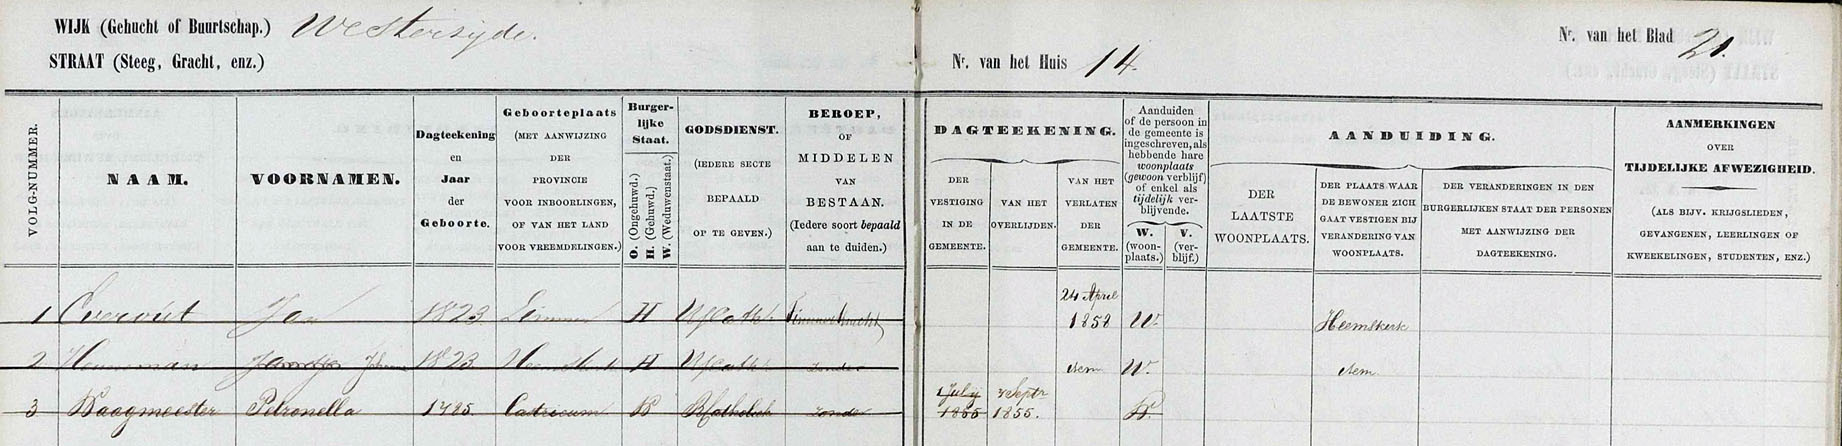 WIJK (Gehucht of Buurtschap.) Westerzijde.
STRAAT (Steeg, Gracht, enz.)
Nr. van het Huis 14.
Nr. van het Blad 21.
VOLG-NUMMER.
NAAM.
VOORNAMEN.
Dagteekening
en
Jaar
der
Geboorte.
Geboorteplaats
(MET AANWIJZING
DER
PROVINCIE
VOOR INBOORLINGEN,
OF VAN HET LAND
VOOR VREEMDELINGEN.)
Burger-
lijke
Staat.
O. (Ongehuwd.)
H. (Gehuwd.)
W. (Weduwenstaat.)
GODSDIENST.
(IEDERE SECTE
BEPAALD
OP TE GEVEN.)
BEROEP,
OF
MIDDELEN
VAN
BESTAAN.
(Iedere soort bepaald
aan te duiden.)
DAGTEEKENING.
DER
VESTIGING
IN DE
GEMEENTE.
VAN HET
OVERLIJDEN.
VAN HET
VERLATEN
DER
GEMEENTE.
Aanduiden
of de persoon in
de gemeente is
ingeschreven, als
hebbende hare
woonplaats
(gewoon verblijf)
of enkel als
tijdelijk ver-
blijvende.
W.
(woon-
plaats.)
V.
(ver-
blijf.)
AANDUIDING.
DER
LAATSTE
WOONPLAATS.
DER PLAATS WAAR
DE BEWONER ZICH
GAAT VESTIGEN BIJ
VERANDERING VAN
WOONPLAATS.
DER VERANDERINGEN IN DEN
BURGERLIJKEN STAAT DER PERSONEN
MET AANWIJZING DER
DAGTEEKENING.
AANMERKINGEN
OVER
TIJDELIJKE AFWEZIGHEID.
(ALS BIJV. KRIJGSLIEDEN,
GEVANGENEN, LEERLINGEN OF
KWEEKELINGEN, STUDENTEN, ENZ.)
1 Jan 1823 Limmen H 24 April 1858 W. Heemskerk
2 1823 H zonder W.
3 Petronella 1785 Castricum RKatholiek zonder 1 July 1855 7 Septr 1855.